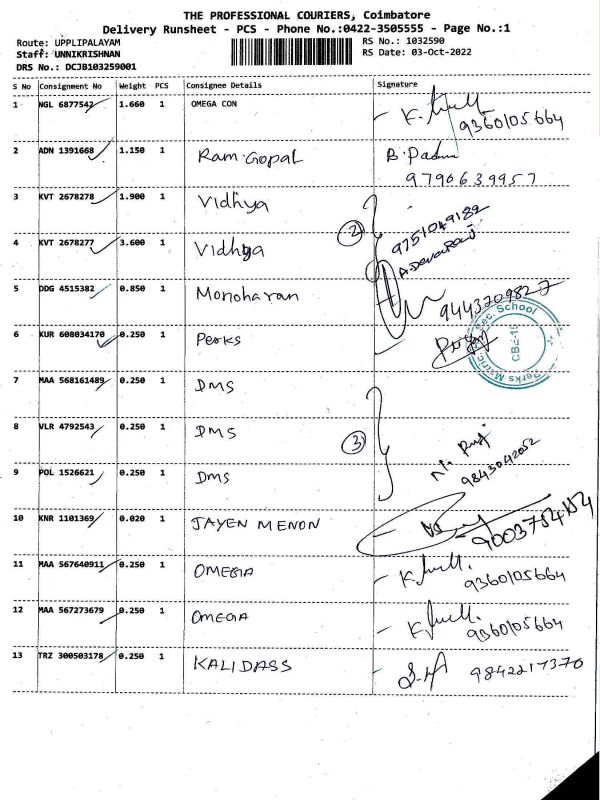 THE PROFESSIONAL COURIERS, Coimbatore
Delivery Runsheet - PCS - Phone No.:0422-3505555 - Page No.:1
Route: UPPLIPALAYAM
Staff: UNNIKRISHNAN
DRS No.: DCJB103259001
RS No.: 1032590
RS Date: 03-Oct-2022
S No Consignment No Weight PCS Consignee Details Signature
1 NGL 6877542 1.660 1 OMEGA CON
9360105664
2 ADN 1391668 1.150 1 Ram Gopal B. Padma
9790639957
3 KVT 2678278 1.900 1 Vidhya
2 9751049182
4 KVT 2678277 3.600 1 Vidhya
A. Devaraj
5 DDG 4515382 0.850 1 Monoharan 9443709827
6 KUR 608034170 0.250 1 Perks
Perks Matric. Sec. School
7 MAA 568161489 0.250 1 DMS
8 VLR 4792543 0.250 1 DMS 3
9 POL 1526621 0.250 1 Dms 9843042052
10 KNR 1101369 0.020 1 JAYEN MENON
11 MAA 567640911 0.250 1 OMEGA 9360105664
12 MAA 567273679 0.250 1 OMEGA 9360105664
13 TRZ 300503178 0.250 1 KALIDASS 9842217370